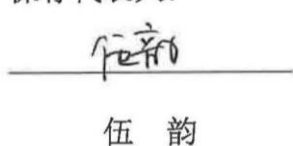 伍韵
伍 韵